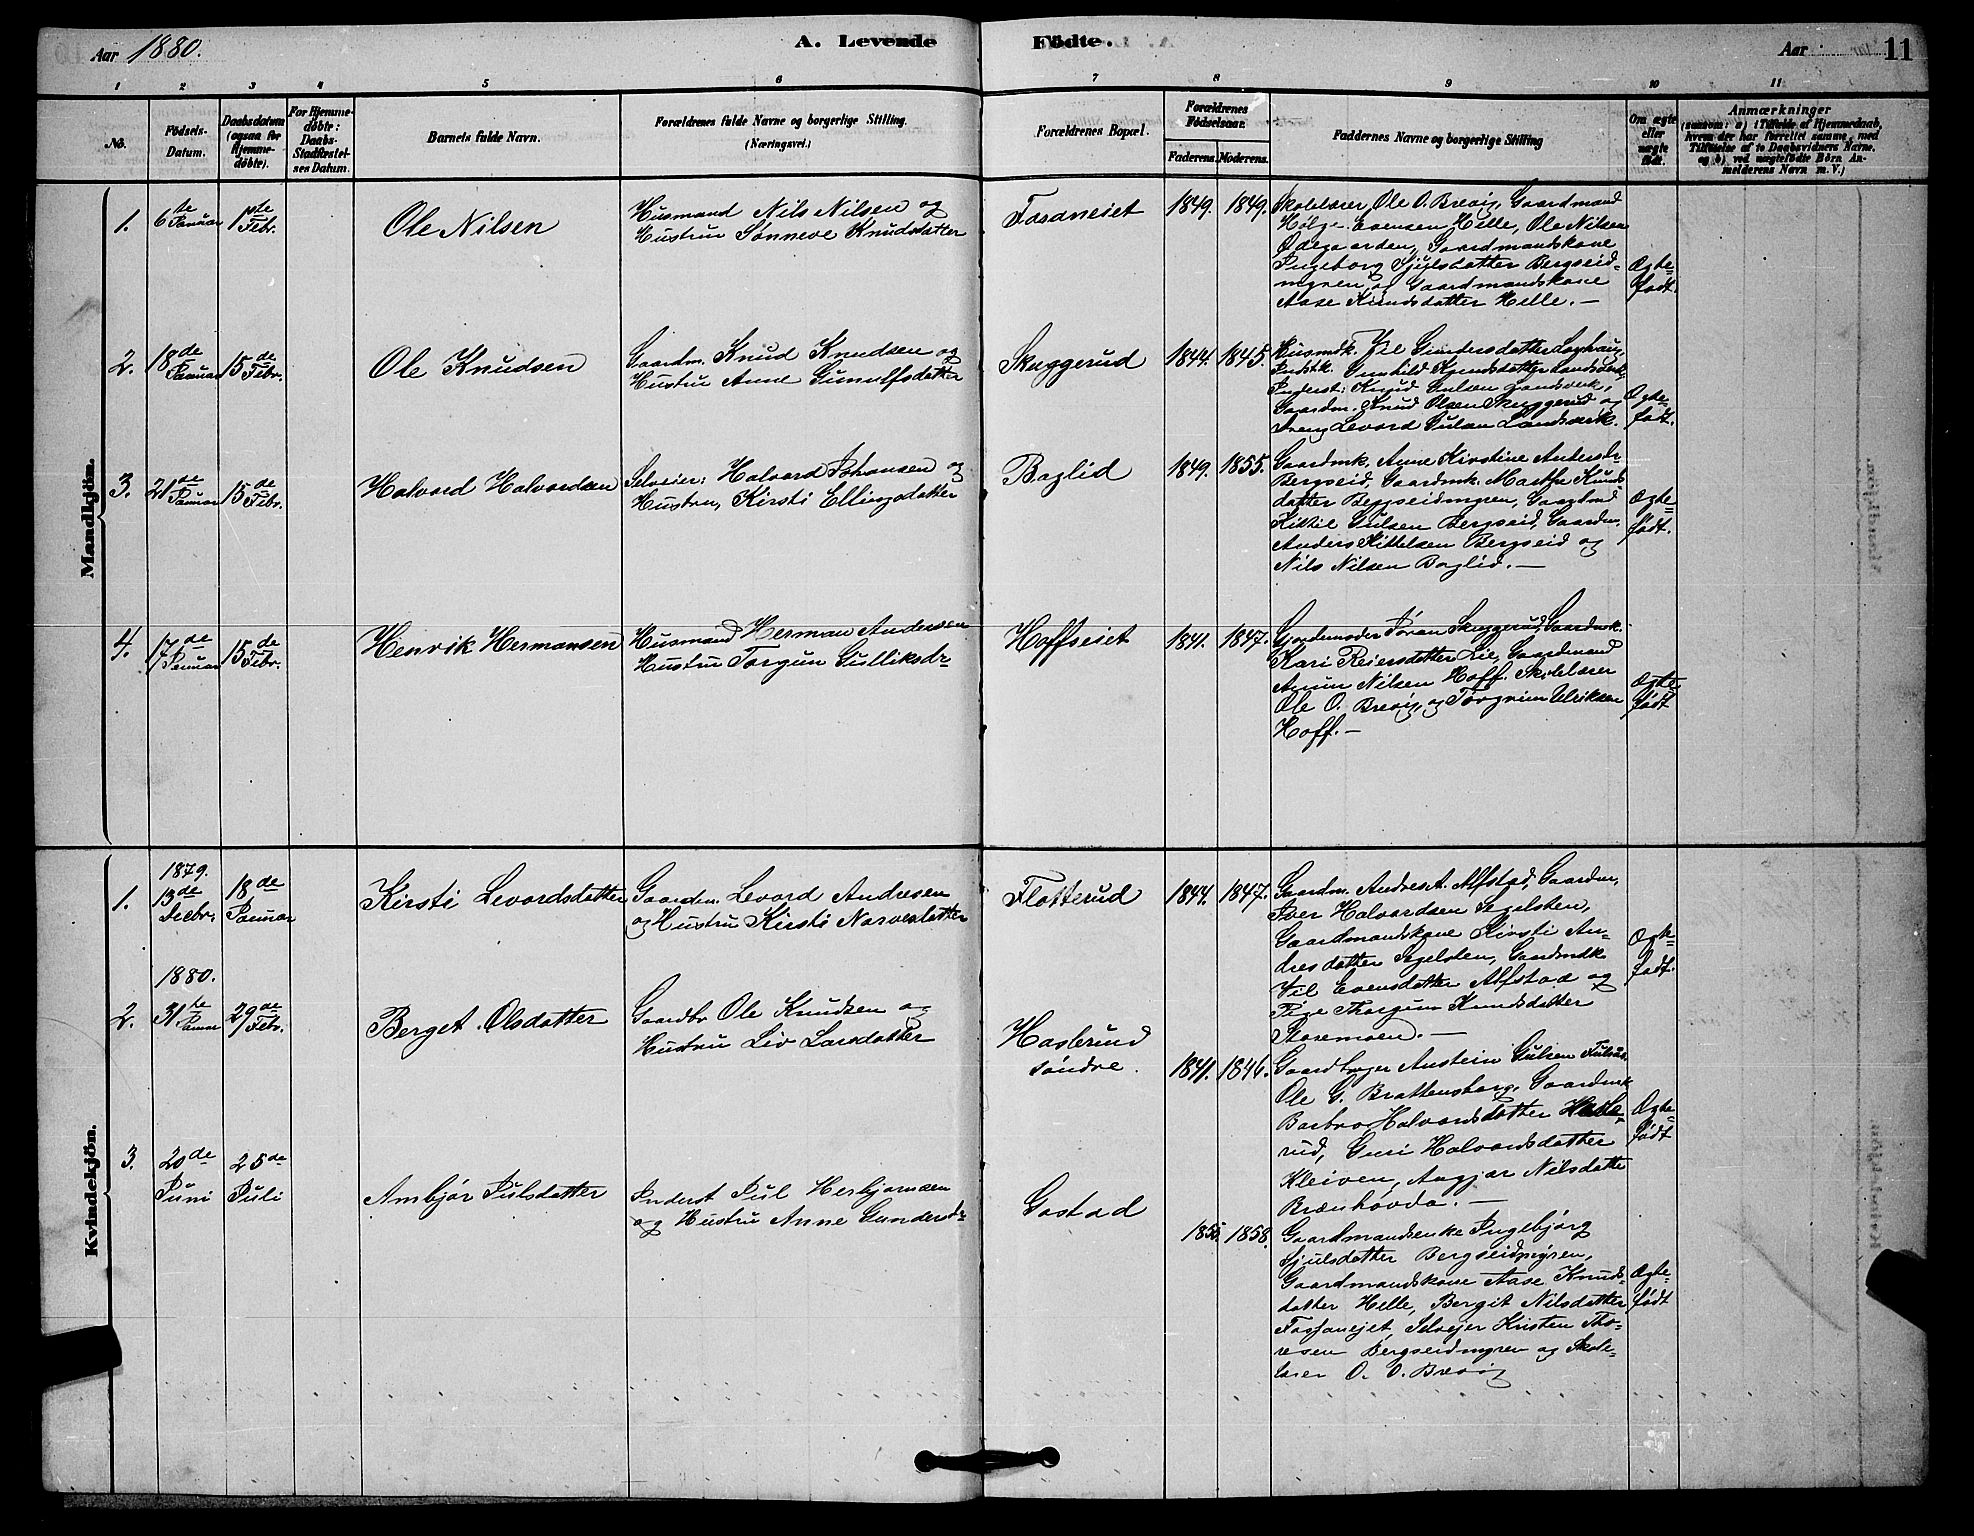 Aar 1880.
A. Levende Fødte.
Aar
11
1 2 3 4 5 6 7 8 9 10 11
No.
Fødsels-
Datum.
Daabsdatum
(ogsaa for
Hjemme-
døbte).
For Hjemme-
døbte:
Daabs-
Stadfæstel-
ses Datum.
Barnets fulde Navn.
Forældrenes fulde Navne og borgerlige Stilling.
(Næringsvei.)
Forældrenes Bopæl.
Forældrenes
Fødselsaar.
Faderens. Moderens.
Faddernes Navne og borgerlige Stilling
Om ægte
eller
uægte
født.
Anmærkninger
(saasom: a) i Tilfælde af Hjemmedaab,
hvem der har forrettet samme, med
Tilføielse af to Daabsvidners Navne.
og b) ved uægtefødte Børn An-
melderens Navn m. V.)
Mandkjön.
1.
6te
Januar
1ste
Febr.
Ole Nilsen
Husmand Nils Nilsen og
Hustru Sønneve Knudsdatter
1849. 1849.
Skolelærer Ole O. Brevig, Gaardmand
Helge Evensen Helle, Ole Nilsen
Ødegaarden, Gaardmandskone
Ingeborg Sjulsdatter Bergseid-
myren og Gaardmandskone
Aase Knudsdatter Helle. —
Ægte-
født.
2.
18de
Januar
15de
Febr.
Ole Knudsen
Gaardm. Knud Knudsen og
Hustru Anne Gunulfsdatter
Skuggerud
1844. 1845.
Husmdk. Gundersdatter
Gunhild Knudsdatter Landsverk
Inderst: Knud Gulsen Landsverk,
Gaardm. Knud Olsen Skuggerud og
Dreng Levord Gulsen Landsverk.
Ægte-
født.
3.
21de
Januar
15de
Febr.
Halvord Halvordsen
Selveier: Halvord Johansen og
Hustru, Kirsti Ellingsdatter
Baglid
1849. 1855.
Gaardmk. Anne Kirstine Andersdr
Bergseid, Gaardmk. Marthe Knuds
datter Bergseidmyren, Gaardmd
Kittil Gulsen Bergseid, Gaardm.
Anders Kittelsen Bergseid og
Nils Nilsen Baglid. —
Ægte-
født.
4.
17de
Januar
15de
Febr.
Henrik Hermansen
Husmand Herman Andersen
Hustru Torgun Gulliksdr
Hoffseiet
1841. 1847.
Gjordemoder Jøran Skuggerud, Gaardmk.
Kari Reiersdatter Lie, Gaardmand
Amun Nilsen Hoff. Skolelærer
Ole O. Brevig, og Torgrim Ulriksen
Hoff. —
Ægte
født
Kvindekjön.
1.
1879.
13de
Decbr.
18de
Januar
Kirsti Levordsdatter
Gaardm. Levord Andresen
og Hustru Kirsti Narvesdatter
Flatterud
1844. 1847.
Gaardm. Andres A. Alfstad, Gaardm.
Iver Halvordsen Segelsten,
Gaardmandskone Kirsti An-
dresdatter Segelsten, Gaardmdk
Evensdatter Alfstad og
Pige Thorgun Knudsdatter
—
Ægte-
født.
2.
1880.
31te
Januar
29de
Febr.
Berget Olsdatter
Gaardbr Ole Knudsen og
Hustru Liv Larsdatter
Haslerud
søndre.
1841. 1846.
Gaardbruger Austein Gulsen
Ole G. Brattensborg, Gaardmk
Barbro Halvorsdatter Hasle-
rud, Guri Halvorsdatter
Kleiven, Angjær Nilsdatter
Brænhovda. —
Ægte-
født
3.
20de
Juni
25de
Juli
Ambjør Julsdatter
Inderst Jul Herbjørnsen
og Hustru Anne Gundersdr
Gostad
1855. 1858.
Gaardmandsenke Ingebjørg
Sjulsdatter Bergseidmyren,
Gaardmandskone Aase Knuds-
datter Helle, Bergit Nilsdatter
Selvejer Kristen Tho-
resen Bergseidmyren og Skole-
lærer O. O. Brevig
Ægte-
født